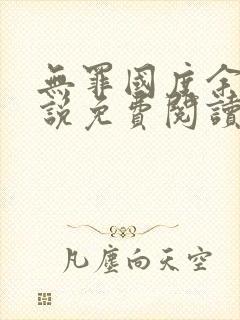 無罪國度余
說免費閱讀
凡塵向天空